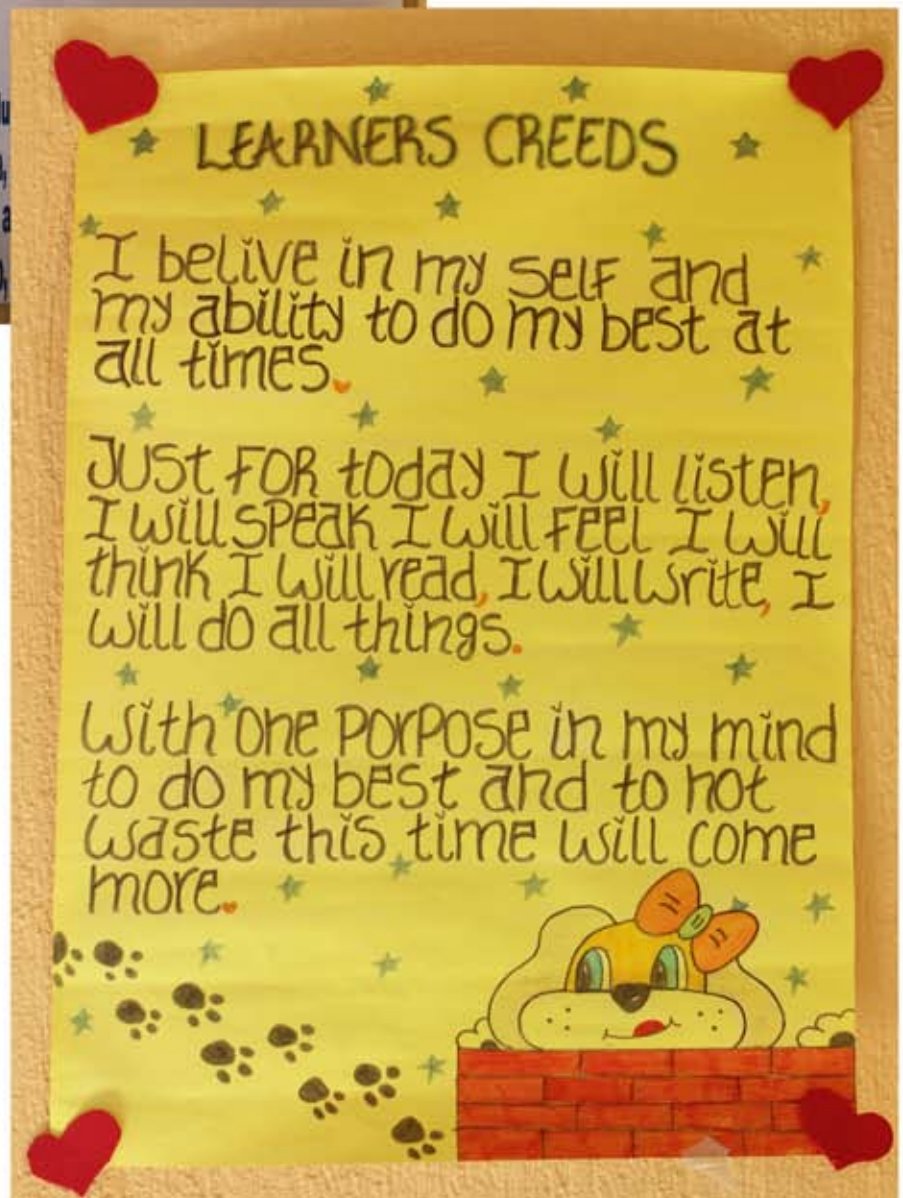 LEARNERS CREEDS
I belive in my self and
my ability to do my best at
all times.
Just for today I will listen,
I will speak I will feel I will
think I will read, I will write, I
will do all things.
With one porpose in my mind
to do my best and to not
waste this time will come
more.